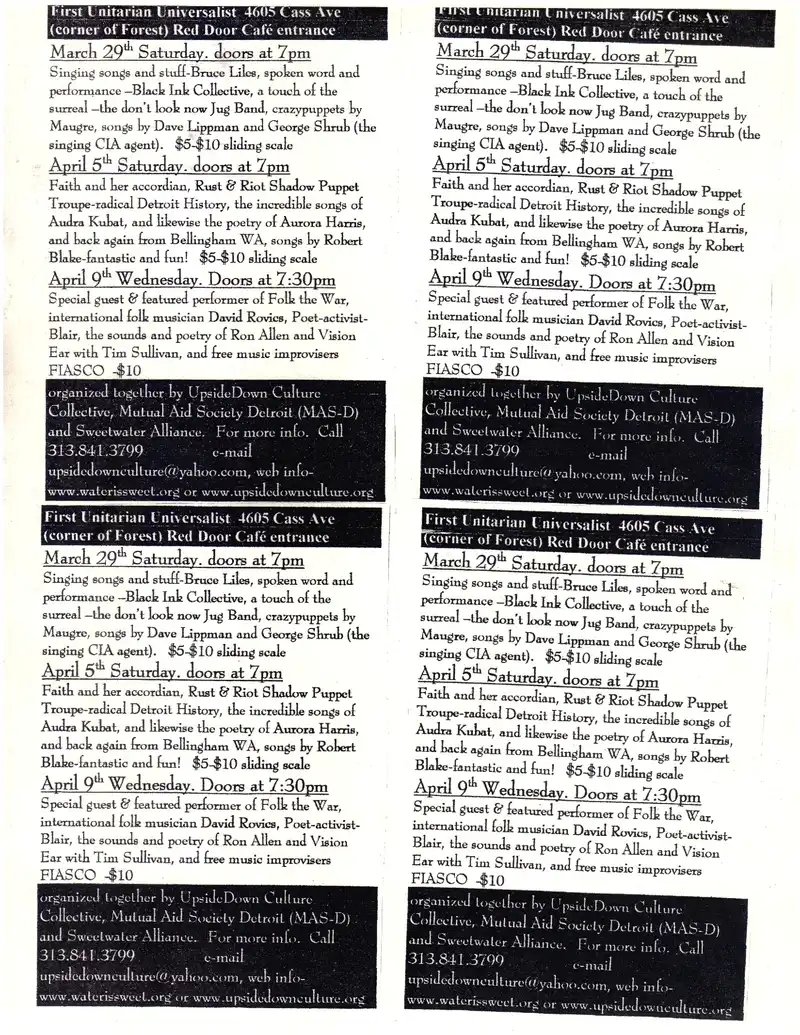 First Unitarian Universalist 4605 Cass Ave
(corner of Forest) Red Door Café entrance
March 29th Saturday. doors at 7pm
Singing songs and stuff-Bruce Liles, spoken word and
performance –Black Ink Collective, a touch of the
surreal –the don't look now Jug Band, crazypuppets by
Maugre, songs by Dave Lippman and George Shrub (the
singing CIA agent). $5-$10 sliding scale
April 5th Saturday. doors at 7pm
Faith and her accordian, Rust & Riot Shadow Puppet
Troupe-radical Detroit History, the incredible songs of
Audra Kubat, and likewise the poetry of Aurora Harris,
and back again from Bellingham WA, songs by Robert
Blake-fantastic and fun! $5-$10 sliding scale
April 9th Wednesday. Doors at 7:30pm
Special guest & featured performer of Folk the War,
international folk musician David Rovics, Poet-activist-
Blair, the sounds and poetry of Ron Allen and Vision
Ear with Tim Sullivan, and free music improvisers
FIASCO -$10
organized together by UpsideDown Culture
Collective, Mutual Aid Society Detroit (MAS-D)
and Sweetwater Alliance. For more info. Call
313.841.3799 e-mail
upsidedownculture@yahoo.com, web info-
www.waterissweet.org or www.upsidedownculture.org
First Unitarian Universalist 4605 Cass Ave
(corner of Forest) Red Door Café entrance
March 29th Saturday. doors at 7pm
Singing songs and stuff-Bruce Liles, spoken word and
performance –Black Ink Collective, a touch of the
surreal –the don't look now Jug Band, crazypuppets by
Maugre, songs by Dave Lippman and George Shrub (the
singing CIA agent). $5-$10 sliding scale
April 5th Saturday. doors at 7pm
Faith and her accordian, Rust & Riot Shadow Puppet
Troupe-radical Detroit History, the incredible songs of
Audra Kubat, and likewise the poetry of Aurora Harris,
and back again from Bellingham WA, songs by Robert
Blake-fantastic and fun! $5-$10 sliding scale
April 9th Wednesday. Doors at 7:30pm
Special guest & featured performer of Folk the War,
international folk musician David Rovics, Poet-activist-
Blair, the sounds and poetry of Ron Allen and Vision
Ear with Tim Sullivan, and free music improvisers
FIASCO -$10
organized together by UpsideDown Culture
Collective, Mutual Aid Society Detroit (MAS-D)
and Sweetwater Alliance. For more info. Call
313.841.3799 e-mail
upsidedownculture@yahoo.com, web info-
www.waterissweet.org or www.upsidedownculture.org
First Unitarian Universalist 4605 Cass Ave
(corner of Forest) Red Door Café entrance
March 29th Saturday. doors at 7pm
Singing songs and stuff-Bruce Liles, spoken word and
performance –Black Ink Collective, a touch of the
surreal –the don't look now Jug Band, crazypuppets by
Maugre, songs by Dave Lippman and George Shrub (the
singing CIA agent). $5-$10 sliding scale
April 5th Saturday. doors at 7pm
Faith and her accordian, Rust & Riot Shadow Puppet
Troupe-radical Detroit History, the incredible songs of
Audra Kubat, and likewise the poetry of Aurora Harris,
and back again from Bellingham WA, songs by Robert
Blake-fantastic and fun! $5-$10 sliding scale
April 9th Wednesday. Doors at 7:30pm
Special guest & featured performer of Folk the War,
international folk musician David Rovics, Poet-activist-
Blair, the sounds and poetry of Ron Allen and Vision
Ear with Tim Sullivan, and free music improvisers
FIASCO -$10
organized together by UpsideDown Culture
Collective, Mutual Aid Society Detroit (MAS-D)
and Sweetwater Alliance. For more info. Call
313.841.3799 e-mail
upsidedownculture@yahoo.com, web info-
www.waterissweet.org or www.upsidedownculture.org
First Unitarian Universalist 4605 Cass Ave
(corner of Forest) Red Door Café entrance
March 29th Saturday. doors at 7pm
Singing songs and stuff-Bruce Liles, spoken word and
performance –Black Ink Collective, a touch of the
surreal –the don't look now Jug Band, crazypuppets by
Maugre, songs by Dave Lippman and George Shrub (the
singing CIA agent). $5-$10 sliding scale
April 5th Saturday. doors at 7pm
Faith and her accordian, Rust & Riot Shadow Puppet
Troupe-radical Detroit History, the incredible songs of
Audra Kubat, and likewise the poetry of Aurora Harris,
and back again from Bellingham WA, songs by Robert
Blake-fantastic and fun! $5-$10 sliding scale
April 9th Wednesday. Doors at 7:30pm
Special guest & featured performer of Folk the War,
international folk musician David Rovics, Poet-activist-
Blair, the sounds and poetry of Ron Allen and Vision
Ear with Tim Sullivan, and free music improvisers
FIASCO -$10
organized together by UpsideDown Culture
Collective, Mutual Aid Society Detroit (MAS-D)
and Sweetwater Alliance. For more info. Call
313.841.3799 e-mail
upsidedownculture@yahoo.com, web info-
www.waterissweet.org or www.upsidedownculture.org